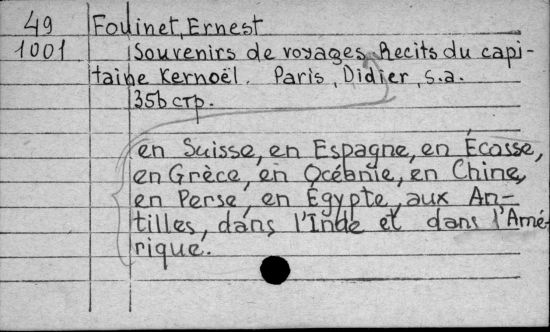 49 Fouinet, Ernest
1001 Souvenirs de voyages. Recits du capi-
taine Kernoël. Paris, Didier, s.a.
356 стр.
en Suisse, en Espagne, en Écosse,
en Grèce, en Océanie, en Chine,
en Perse, en Égypte, aux An-
tilles, dans l'Inde et dans l'Amé-
rique.